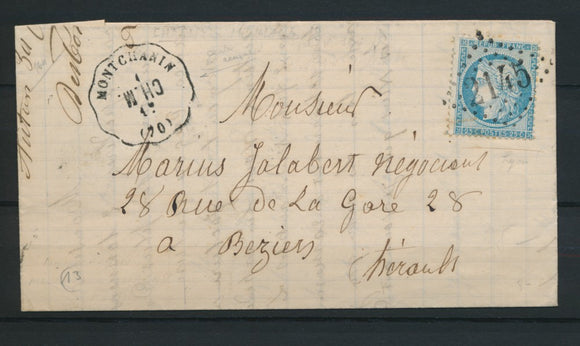 MONTCHANIN
CH.M
(70)
REPUB. FRANC.
2145
25 C. POSTES 25 C.
Monsieur
Marius Jalabert Négociant
28 Rue de La Gare 28
a Beziers
hérault
13